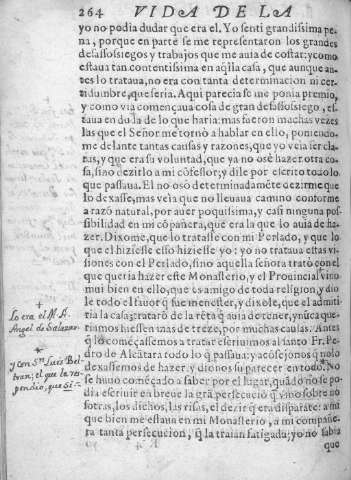 264 VIDA DE LA
yo no podia dudar que era el. Yo senti grandissima pe
na, porque en parte se me representaron los grandes
desassossiegos y trabajos que me auia de costar: y como
estaua tan contentissima en aq̃lla casa, que aunque an
tes lo trataua, no era con tanta determinacion ni cer
tidumbre, que seria. Aqui parecia se me ponia premio,
y como via començaua cosa de gran desassossiego, es
taua en duda de lo que haria: mas fueron muchas vezes
las que el Señor me tornò a hablar en ello, poniendo
me delante tantas causas y razones, que yo veia ser cla
ras, y que era su voluntad, que ya no osè hazer otra co
sa, sino dezirlo a mi cõfessor; y dile por escrito todo lo
que passaua. El no osò determinadamẽte dezirme que
lo dexasse, mas veìa que no lleuaua camino conforme
a razõ natural, por auer poquissima, y casi ninguna pos
sibilidad en mi cõpañera, que era la que lo auia de ha-
zer. Dixome, que lo tratasse con mi Perlado, y que lo
que el hiziesse esso hiziesse yo: yo no trataua estas vi-
siones con el Perlado, sino aquella señora tratò con el
que queria hazer este Monasterio, y el Prouincial vino
mui bien en ello, que es amigo de toda religion, y dio
le todo el fauor q̃ fue menester, y dixole, que el admiti
ria la casa: tratarõ de la rẽta q̃ auia de tener, y nũca que-
riamos fuessen mas de treze, por muchas causas. Antes
q̃ lo començassemos a tratar escriuimos al santo Fr. Pe
dro de Alcãtara todo lo q̃ passaua; y acõsejonos q̃ no lo
dexassemos de hazer, y dionos su parecer en todo. No
se huuo començado a saber por el lugar, quãdo no se po
dia escriuir en breue la grã persecuciõ q̃ vino sobre no
sotras, los dichos, las risas, el dezir q̃ era disparate: a mi
que bien me estaua en mi Monasterio, a mi compañe-
ra tanta persecucion, q̃ la traìan fatigada; yo no sabia
que
Lo era el M. A.
Angel de Salazar
y con S.n Luis Bel-
tran; el que la res-
pondio, que Si.